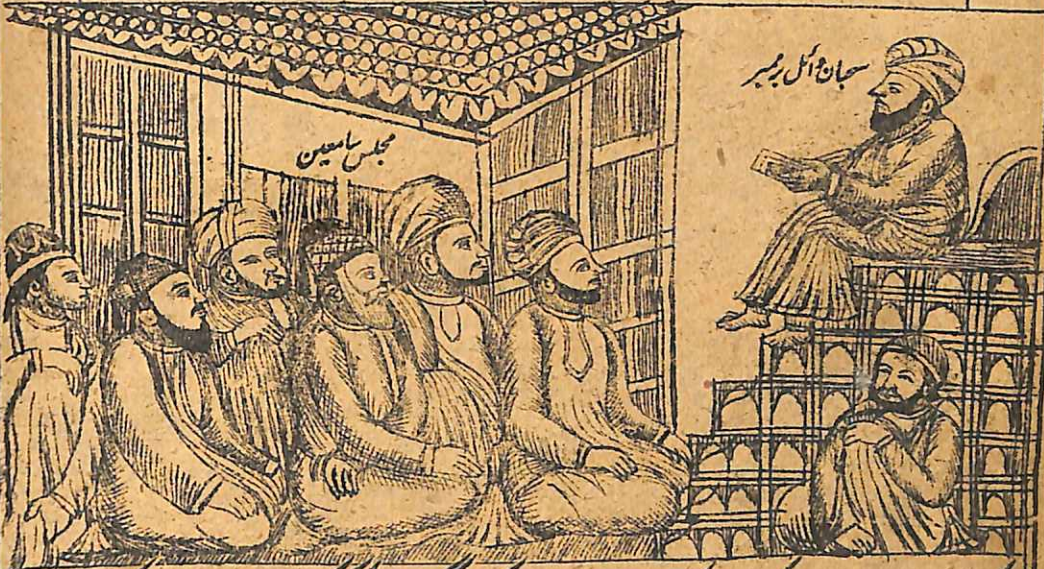 سحبان وائل بر ممبر
مجلس سامعین